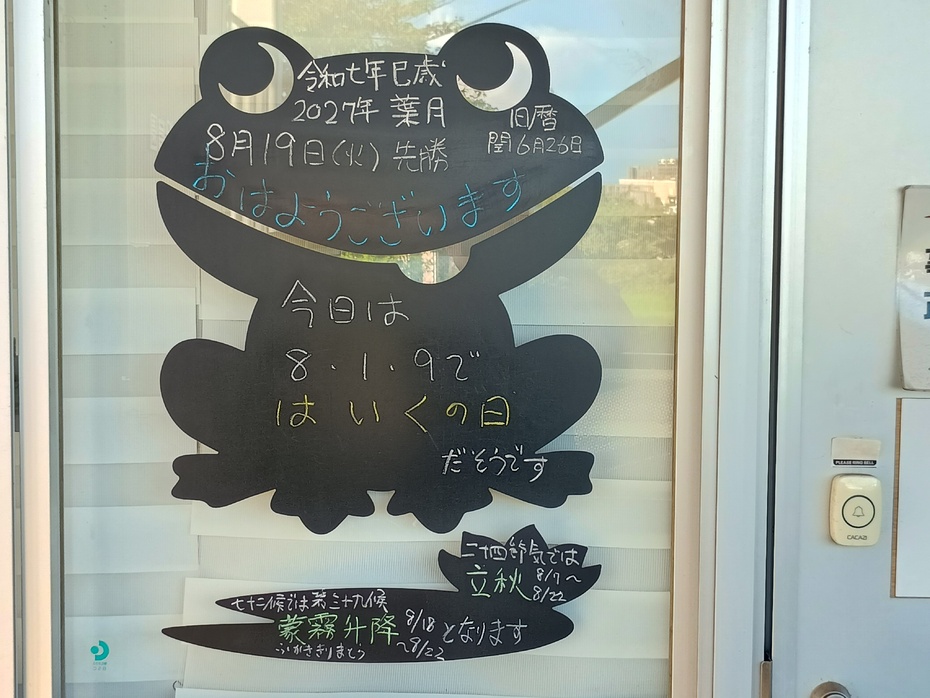 令和七年巳歳
2027年 葉月
8月19日(火) 先勝
旧暦
閏6月26日
おはようございます
今日は
8・1・9で
はいくの日
だそうです
二十四節気では
立秋 8/7～
8/22
七十二候では第三十九候
蒙霧升降 8/18
～8/22
となります
ふかききりまとう
PLEASE RING BELL
CACAZI